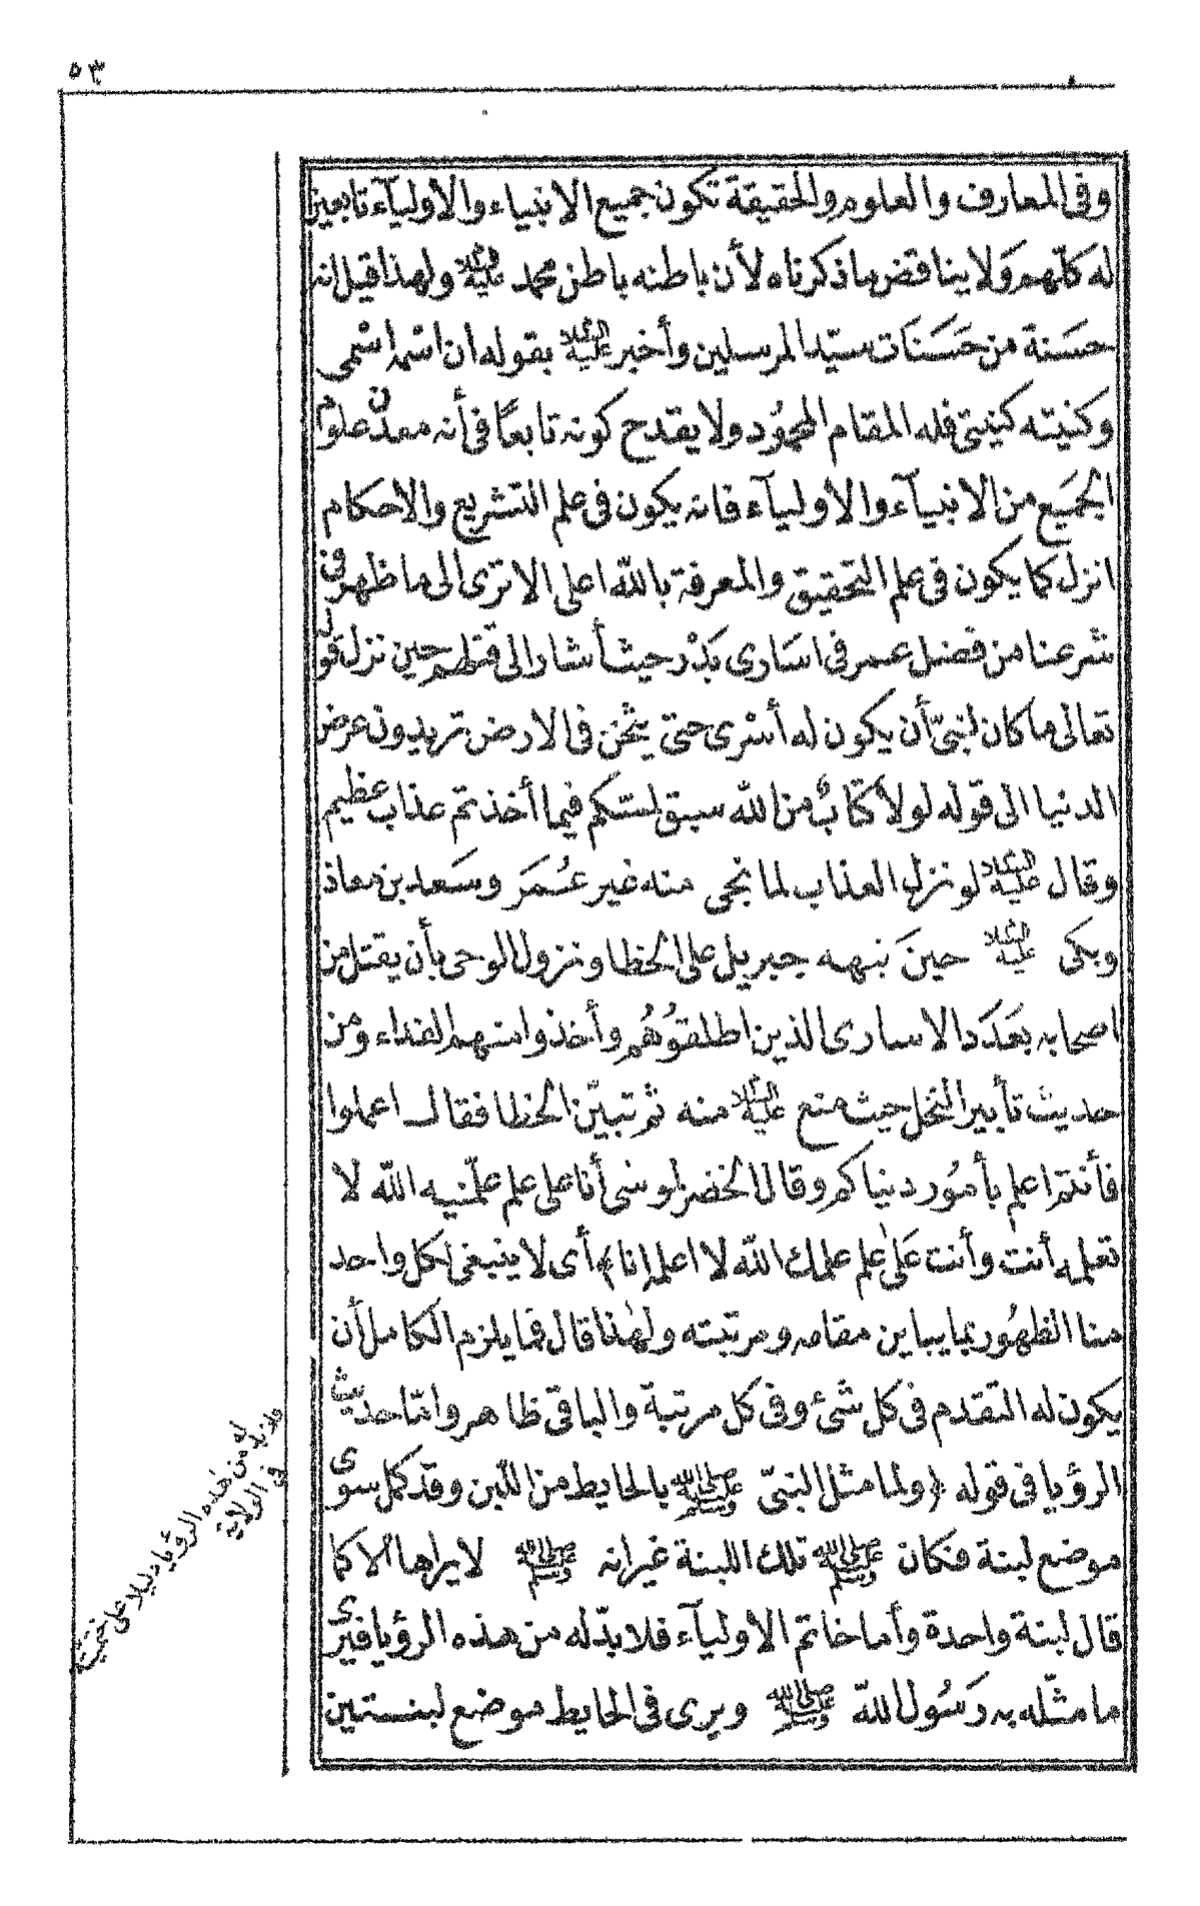 ٥٣
وفى المعارف والعلوم والحقيقة تكون جميع الانبياء والاوليآء تابعين
له كلّهم وَلاينا قض ما ذكرناه لأن باطنه باطن محمد عليه السلام ولهذا قيل انه
حسَنة من حَسَنَات سيّد المرسلين وأخبر عليه السلام بقوله ان اسْمه اسْمى
وكنيته كنيتى فله المقام المحمُود ولا يقدح كونه تابعًا فى أنه معدن علوم
الجَميَع من الانبيآء والاوليآء فانه يكون فى علم التشريع والاحكام
انزل كما يكون فى علم التحقيق والمعرفة بالله اعلى الا ترى الى ما ظهر فى
شرعنا من فضل عمر فى اسَارى بَدْر حيث أشار الى قتلهم حين نزل قوله
تعالى ما كان لنبىّ أن يكون له أسْرى حتى يثخن فى الارض تريدون عرض
الدنيا الى قوله لولا كتابٌ من الله سبق لمسّكم فيما أخذتم عذاب عظيم
وقال عليه السلام لو نزل العذاب لما نجى منه غير عُمَر وسَعد بن معاذ
وبكى عليه السلام حينَ نبهه جبريل على الخطا ونزول الوحى بأن يقتل من
اصحابه بعَدَد الاسارى الذين اطلقوُهُم وأخذوا منهم الفداء ومن
حديث تأبير النخل حيث منع عليه السلام منه ثم تبيّن الخطا فقال اعملوا
فأنتم اعلم بأمُور دنياكم وقال الخضر لموسَى أنا على علم علّمنيه الله لا
تعلمه أنت وأنت عَلى علم علمك الله لا اعلمه انا﴾ أى لا ينبغى لكل واحد
منا الظهُور بما يباين مقامه ومرتبته ولهٰذا قال فما يلزم الكامل أن
يكون له التقدم فى كل شئ وفى كل مرتبة والباقى ظاهر وامّا حديث
الرؤيا فى قوله ﴿ولما مثل النبىّ صلى الله عليه وسلم بالحايط من اللبن وقد كمل سوى
موضع لبنة فكان صلى الله عليه وسلم تلك اللبنة غير انه صلى الله عليه وسلم لا يراها الا كما
قال لبنة واحدة وأما خاتم الاوليآء فلا بدّ له من هذه الرؤيا فيرى
ما مثّله به رَسُول الله صلى الله عليه وسلم ويرى فى الحايط موضع لبنتين
له من هٰذه الرؤيا دليلا على
فى الولاية